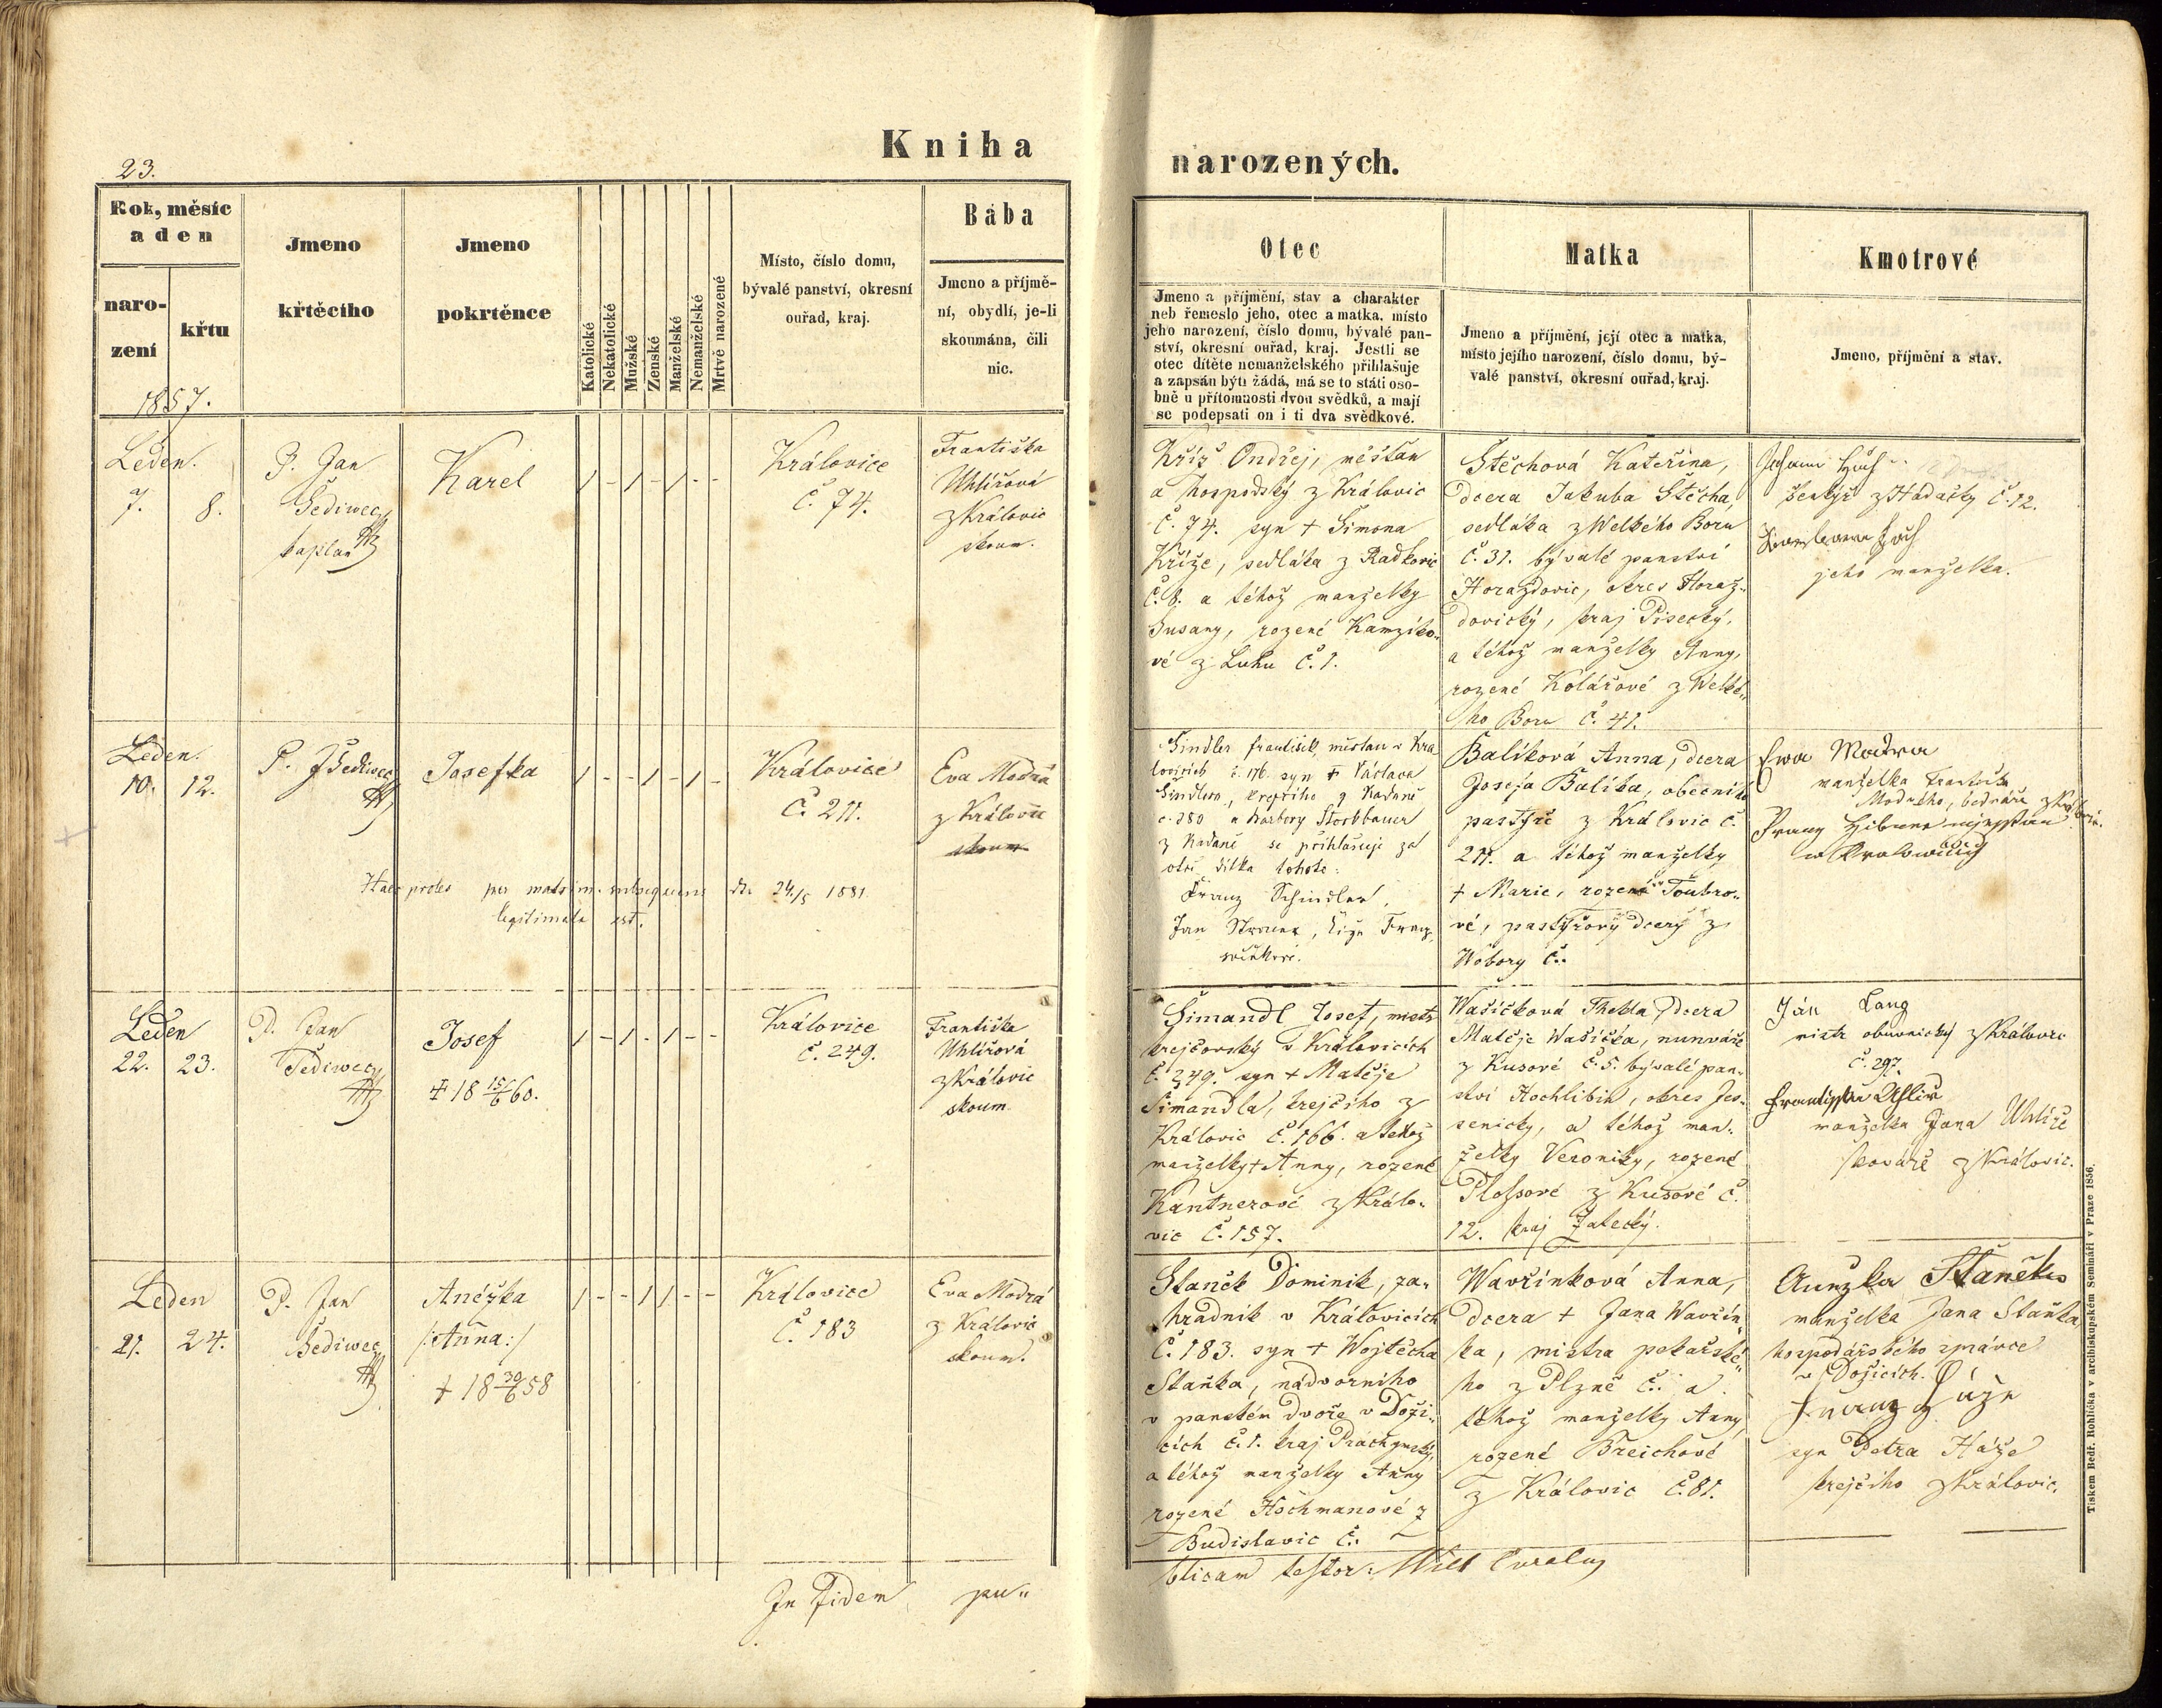 23.
Kniha
narozených.
Rok, měsíc
a den
naro-
zení
křtu
1857.
Jmeno
křtěcího
Jmeno
pokrtěnce
Katolické
Nekatolické
Mužské
Zenské
Manželské
Nemanželské
Mrtvě narozené
Místo, číslo domu,
bývalé panství, okresní
ouřad, kraj.
Bába
Jmeno a příjmě-
ní, obydlí, je-li
skoumána, čili
nic.
Otec
Jmeno a příjmění, stav a charakter
neb řemeslo jeho, otec a matka, místo
jeho narození, číslo domu, bývalé pan-
ství, okresní ouřad, kraj. Jestli se
otec dítěte nemanželského přihlašuje
a zapsán býti žádá, má se to státi oso-
bně u přítomnosti dvou svědků, a mají
se podepsati on i ti dva svědkové.
Matka
Jmeno a příjmění, její otec a matka,
místo jejího narození, číslo domu, bý-
valé panství, okresní ouřad, kraj.
Kmotrové
Jmeno, příjmění a stav.
Leden.
7. 8.
P. Jan
Šediwec
kaplan
Karel
/ - / - / - -
Královice
č. 74.
Františka
Uhlířová
z Královic
skoum.
Kříž Ondřej, měšťan
a hospodský z Královic
č. 74. syn + Šimona
Kříže, sedláka z Radkovic
č. 8. a téhož manželky
Susany, rozené Kamzíko-
vé z Luhu č. 1.
Štěchová Kateřina,
dcera Jakuba Štěcha,
sedláka z Welkého Boru
č. 31. bývalé panství
Horažďovic, okres Horaž-
dovický, kraj Písecký,
a téhož manželky Anny,
rozené Kolářové z Welké-
ho Boru č. 41.
z Hadačky č. 12.
jeho manželka.
Leden.
10. 12.
P. J Šediwec
Josefka
/ - - / - / -
Královice
č. 211.
Eva Modrá
z Královic
skoum
Haec proles per matrim. subsequens de 24/5 1881
legitimata est.
Šindler František měšťan v Kra
lovicích č. 176. syn + Václava
Šindlera, krejčího z Kadaně
č. 280 a Barbory Stockbauer
z Kadaně se přihlašuje za
otce dítka tohoto:
Franz Schindler,
Jan
Balíková Anna, dcera
Josefa Balíka, obecního
pastýře z Královic č.
211. a téhož manželky
+ Marie, rozené Toubro-
vé, pastýřovy dcery z
Wobory č..
Ewa Modra
manželka Františka
Modrého, bednáře z Královic.
Leden
22. 23.
P. Jan
Šediwec
Josef
+ 18 15/6 60.
/ - / - / - -
Královice
č. 249.
Františka
Uhlířová
z Královic
skoum.
Šimandl Josef, mistr
krejčovský v Královicích
č. 249. syn + Matěje
Šimandla, krejčího z
Královic č. 166. a téhož
manželky + Anny, rozené
Kantnerové z Králo-
vic č. 157.
Wašíčková Thekla, dcera
Matěje Wašíčka,
z Kusové č. 5. bývalé pan-
ství Hochlibin, okres Jes-
senicky, a téhož man-
želky Veroniky, rozené
Plossové z Kusové č.
12. kraj Žatecký.
Ján Lang
mistr obuvnický z Královic
č. 297.
Františka Uhlíř
manželka Jana Uhlíře
kováře z Královic.
Leden
21. 24.
P. Jan
Šediwec
Anéžka
/: Anna :/
+ 18 30/6 58
/ - - / / - -
Královice
č. 183
Eva Modrá
z Královic
skoum.
Staněk Dominik, za-
hradník v Královicích
č. 183. syn + Wojtěcha
Staňka, nádvorního
v panském dvoře v Doži-
cích č. 1. kraj Prachynský,
a téhož manželky Anny
rozené Hochmanové z
Budislavic č..
Wavřínková Anna,
dcera + Jana Wavřín-
ka, mistra pekařské-
ho z Plzně č.. a
téhož manželky Anny,
rozené Breichové
z Královic č. 81.
Anežka Staněk
manželka Jana Staňka
hospodářského správce
v Dožicích.
syn Petra Háže
krejčího z Královic.
In Fidem pu-
blicam testor:
Tiskem Bedř. Rohlíčka v arcibiskupském Semináři v Praze 1856.